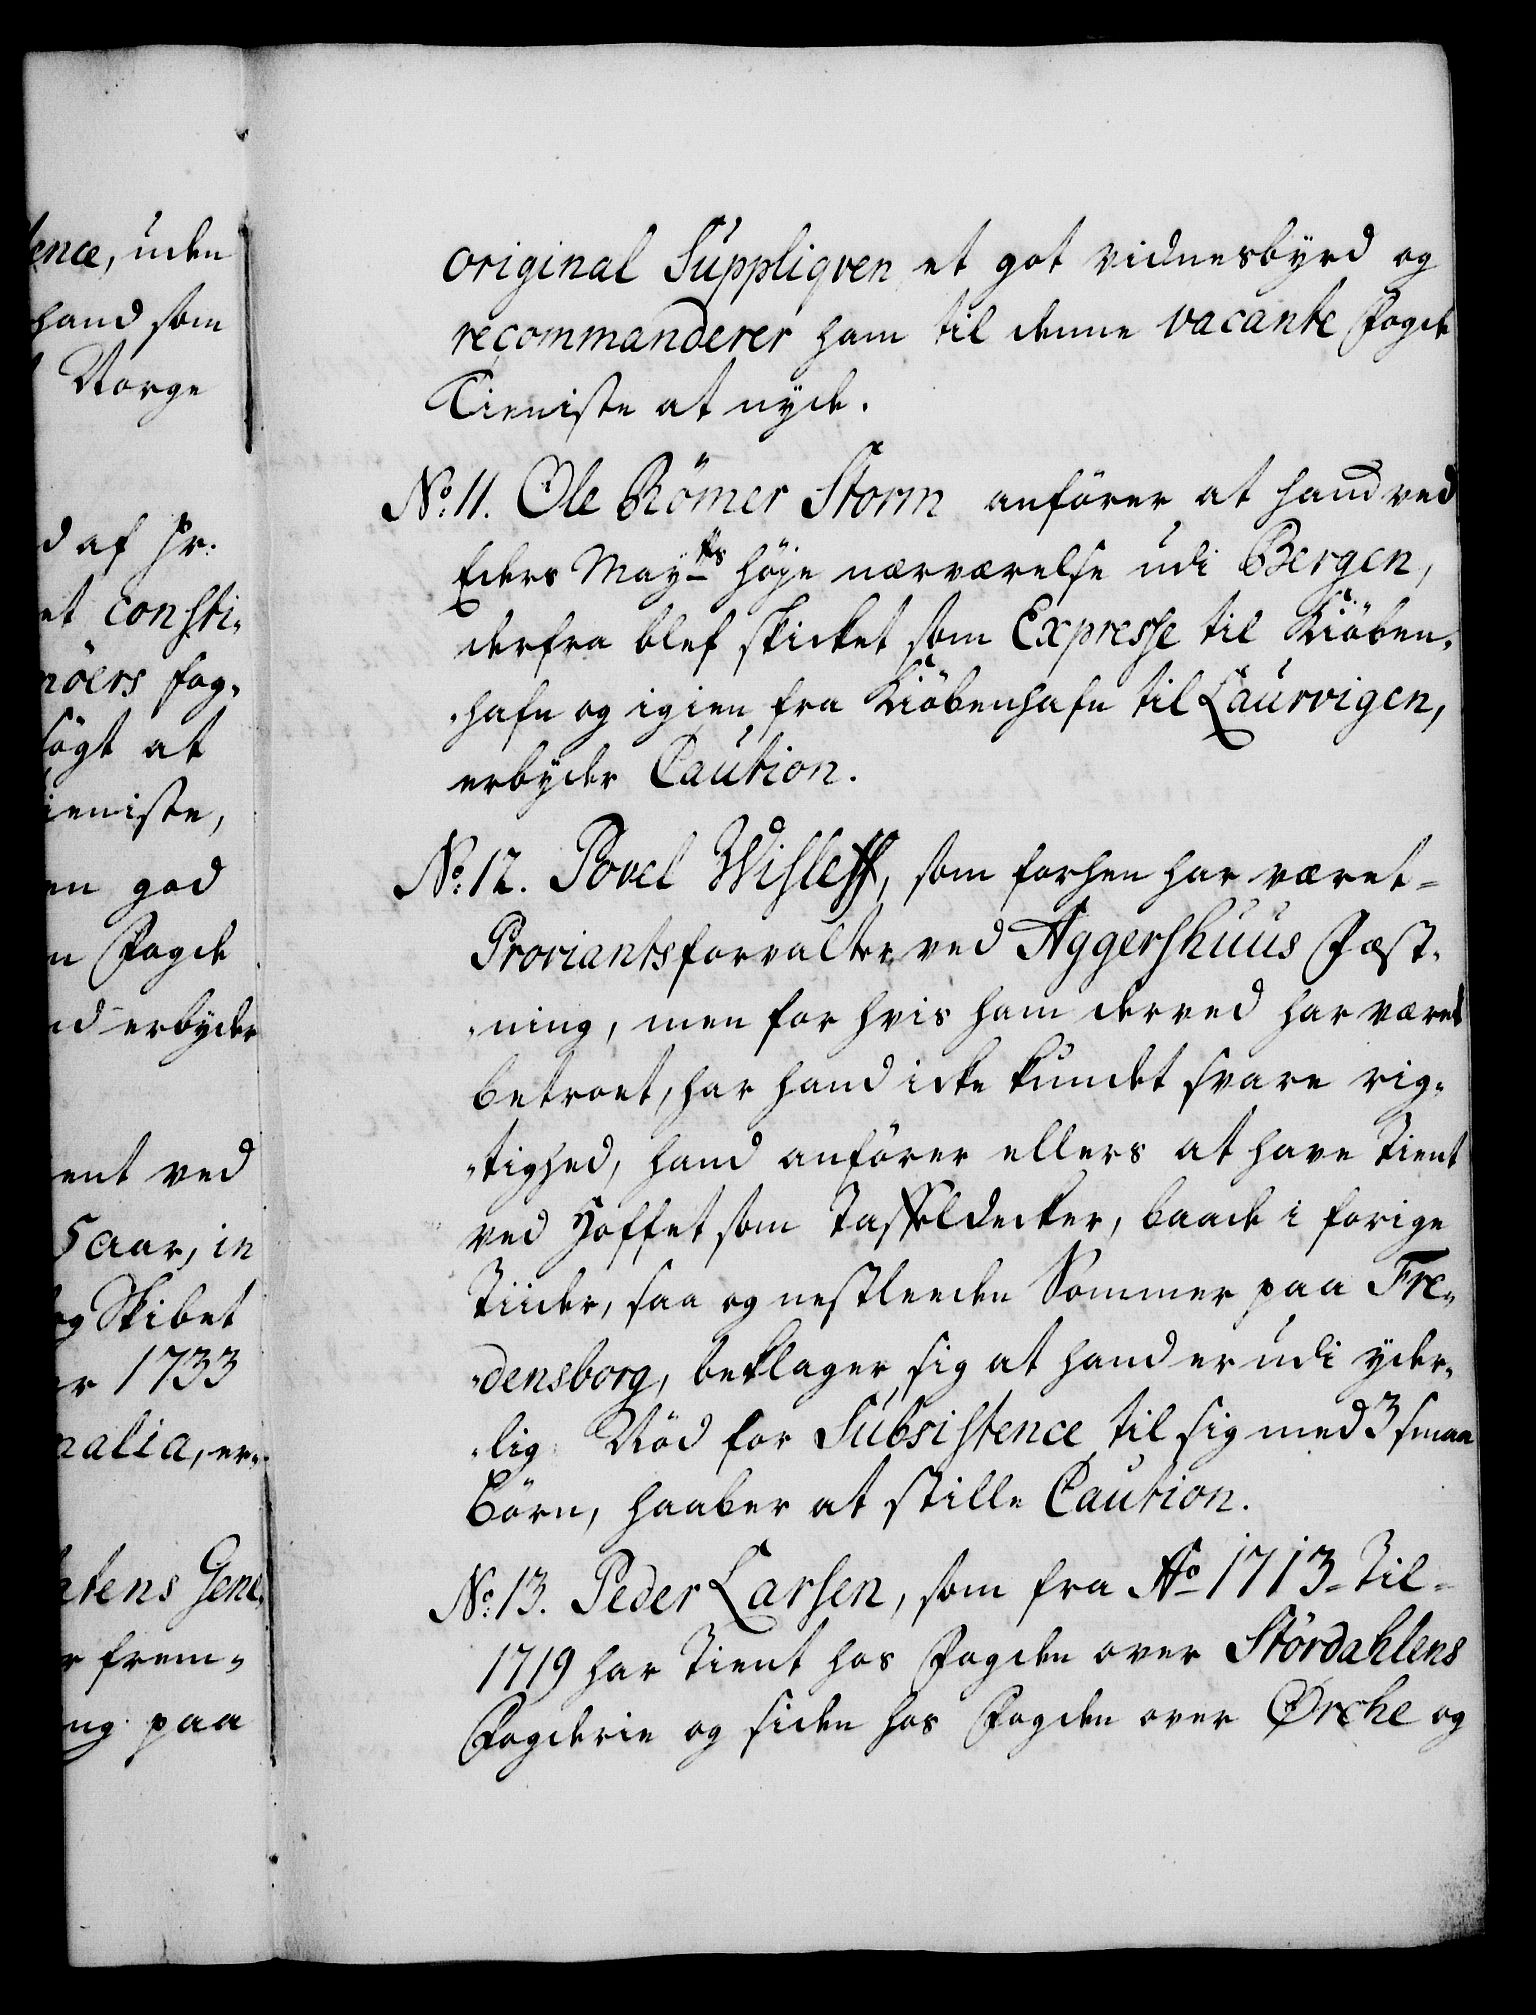 ence, uden
hand som
Norge
d af Hr.
et consti-
nöers fog-
sögt at
ieniste,
en god
n Fogde
nd erbyder
ent ved
5 aar, in
og Skibet
er 1733
nalia, er-
htens Gene-
r frem-
ng paa
original Suppliqven et got vidnesbyrd og
recommanderer ham til denne vacante Fogde
Tieniste at nyde.
No. 11. Ole Römer Storm anförer at hand ved
Eders Mayts höje nærværelse udi Bergen,
derfra blef skicket som Expresse til Kiöben-
-hafn og igien fra Kiöbenhafn til Laurvigen,
erbyder Caution.
No. 12. Povel Wisleff, som forhen har været
Proviantsforvalter ved Aggershuus Fæst-
-ning, men for hvis ham derved har været
betroet, har hand icke kundet svare rig-
-tighed, hand anförer ellers at have tient
ved Hoffet som Taffeldecker, baade i forige
Tiider, saa og nestleeden Sommer paa Fre-
-densborg, beklager sig at hand er udi yder-
-lig Nöd for Subsistence til sig med 3 smaa
Börn, haaber at stille Caution.
No. 13. Peder Larsen, som fra Ao 1713 til
1719 har tient hos Fogden over Stördahlens
Fogderie og siden hos Fogden over Ørche og